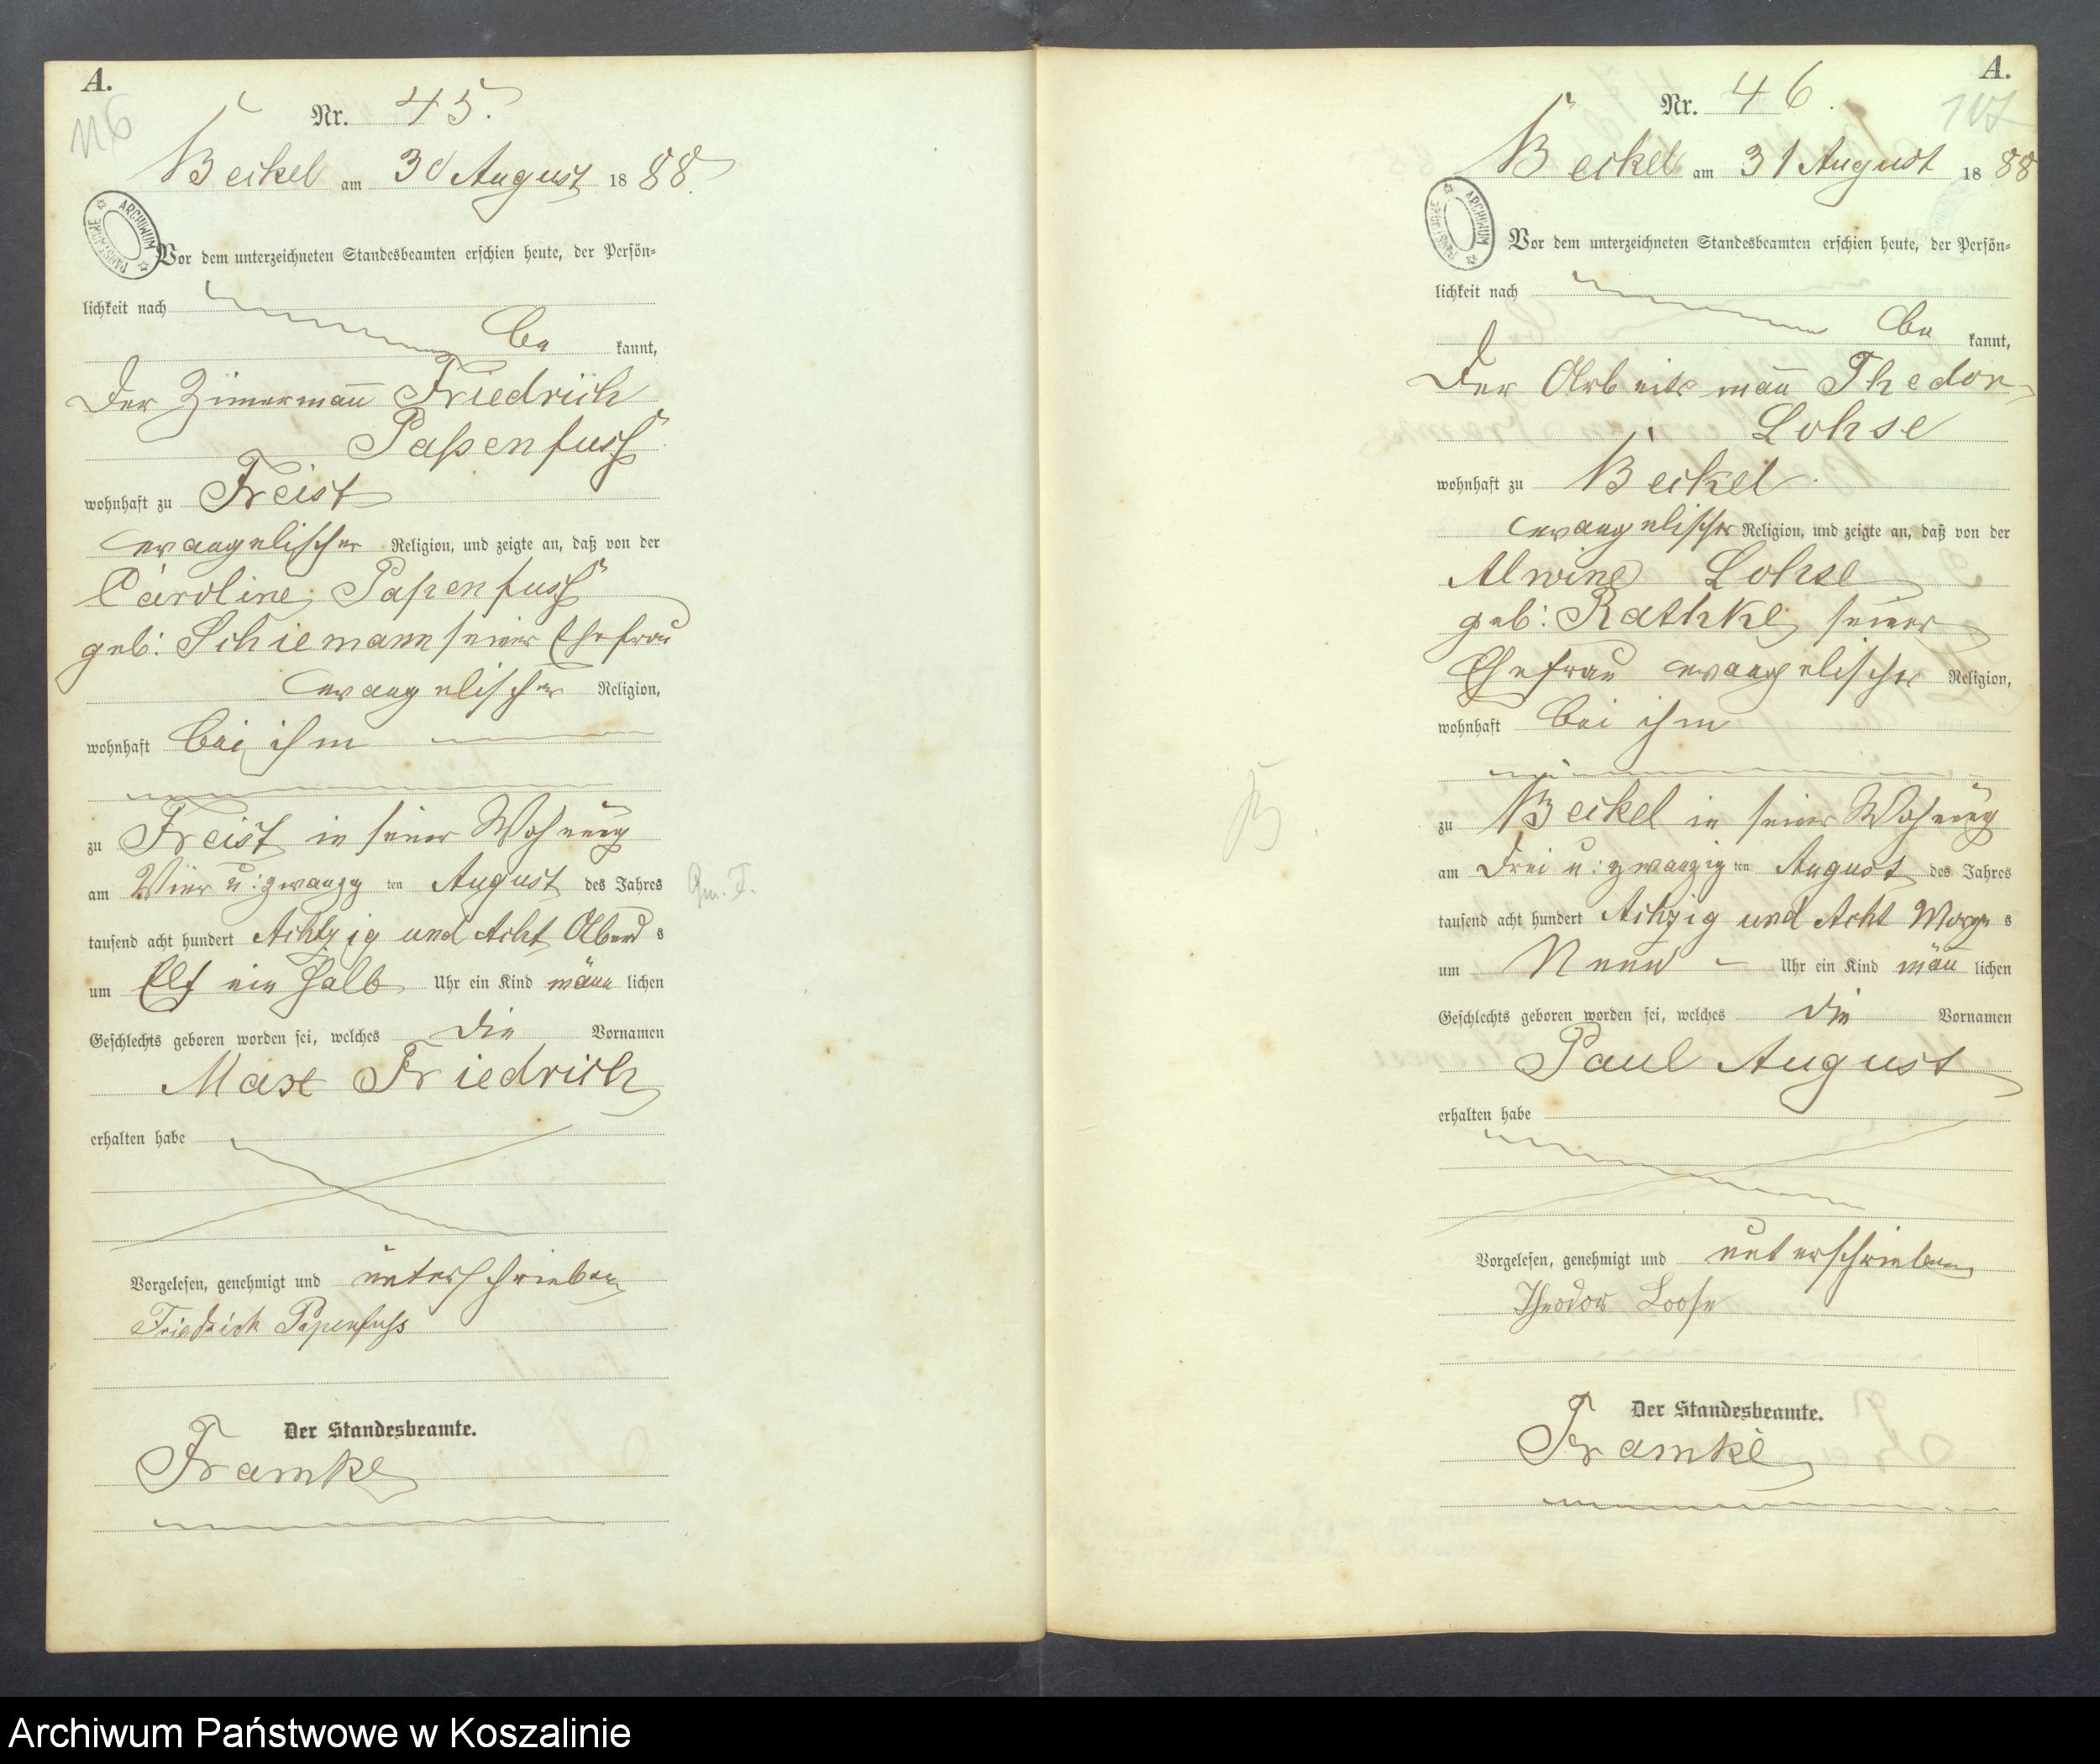 A.
116
Nr. 45.
Beckel am 30 August 1888.
ARCHIWUM PAŃSTWOWE
Vor dem unterzeichneten Standesbeamten erschien heute, der Persön-
lichkeit nach
be kannt,
Der Zimermañ Friedrich
Papenfuss
wohnhaft zu Freist
evangelischer Religion, und zeigte an, daß von der
Caroline Papenfuss
geb: Schiemann seiner Ehefrau
evangelischer Religion,
wohnhaft bei ihm
zu Freist in seiner Wohnung
am Vier u: zwanzig ten August des Jahres
tausend acht hundert Achtzig und Acht Abend s
um Elf ein halb Uhr ein Kind männ lichen
Geschlechts geboren worden sei, welches die Vornamen
Max Friedrich
erhalten habe
Vorgelesen, genehmigt und unterschrieben
Friedrich Papenfuß
Der Standesbeamte.
Framke
A.
117
Nr. 46.
Beckel am 31 August 1888
ARCHIWUM PAŃSTWOWE
Vor dem unterzeichneten Standesbeamten erschien heute, der Persön-
lichkeit nach
be kannt,
Der Arbeits mañ Thedor
Lohse
wohnhaft zu Beckel
evangelischer Religion, und zeigte an, daß von der
Alwine Lohse
geb: Rathke seiner
Ehefrau evangelischer Religion,
wohnhaft bei ihm
zu Beckel in seiner Wohnung
am Drei u: zwanzig ten August des Jahres
tausend acht hundert Achzig und Acht Morgen s
um Neun Uhr ein Kind mäñ lichen
Geschlechts geboren worden sei, welches die Vornamen
Paul August
erhalten habe
Vorgelesen, genehmigt und unterschrieben
Theodor Loose
Der Standesbeamte.
Framke
Archiwum Państwowe w Koszalinie